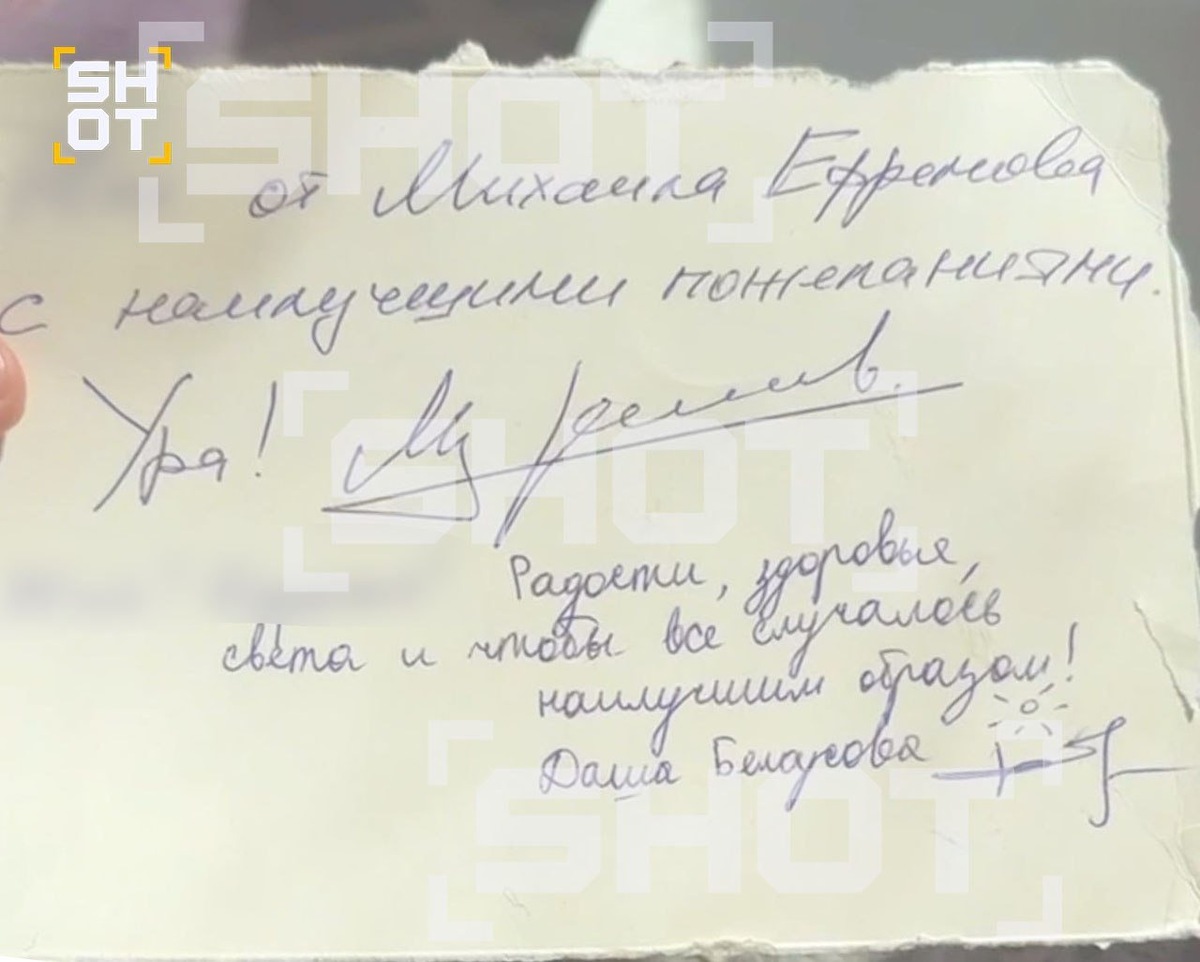 SH
OT
от Михаила Ефремова
с наилучшими пожеланиями.
Ура!
Радости, здоровья,
света и чтобы все случалось
наилучшим образом!
Даша Белоусова
SHOT
SHOT
SHOT